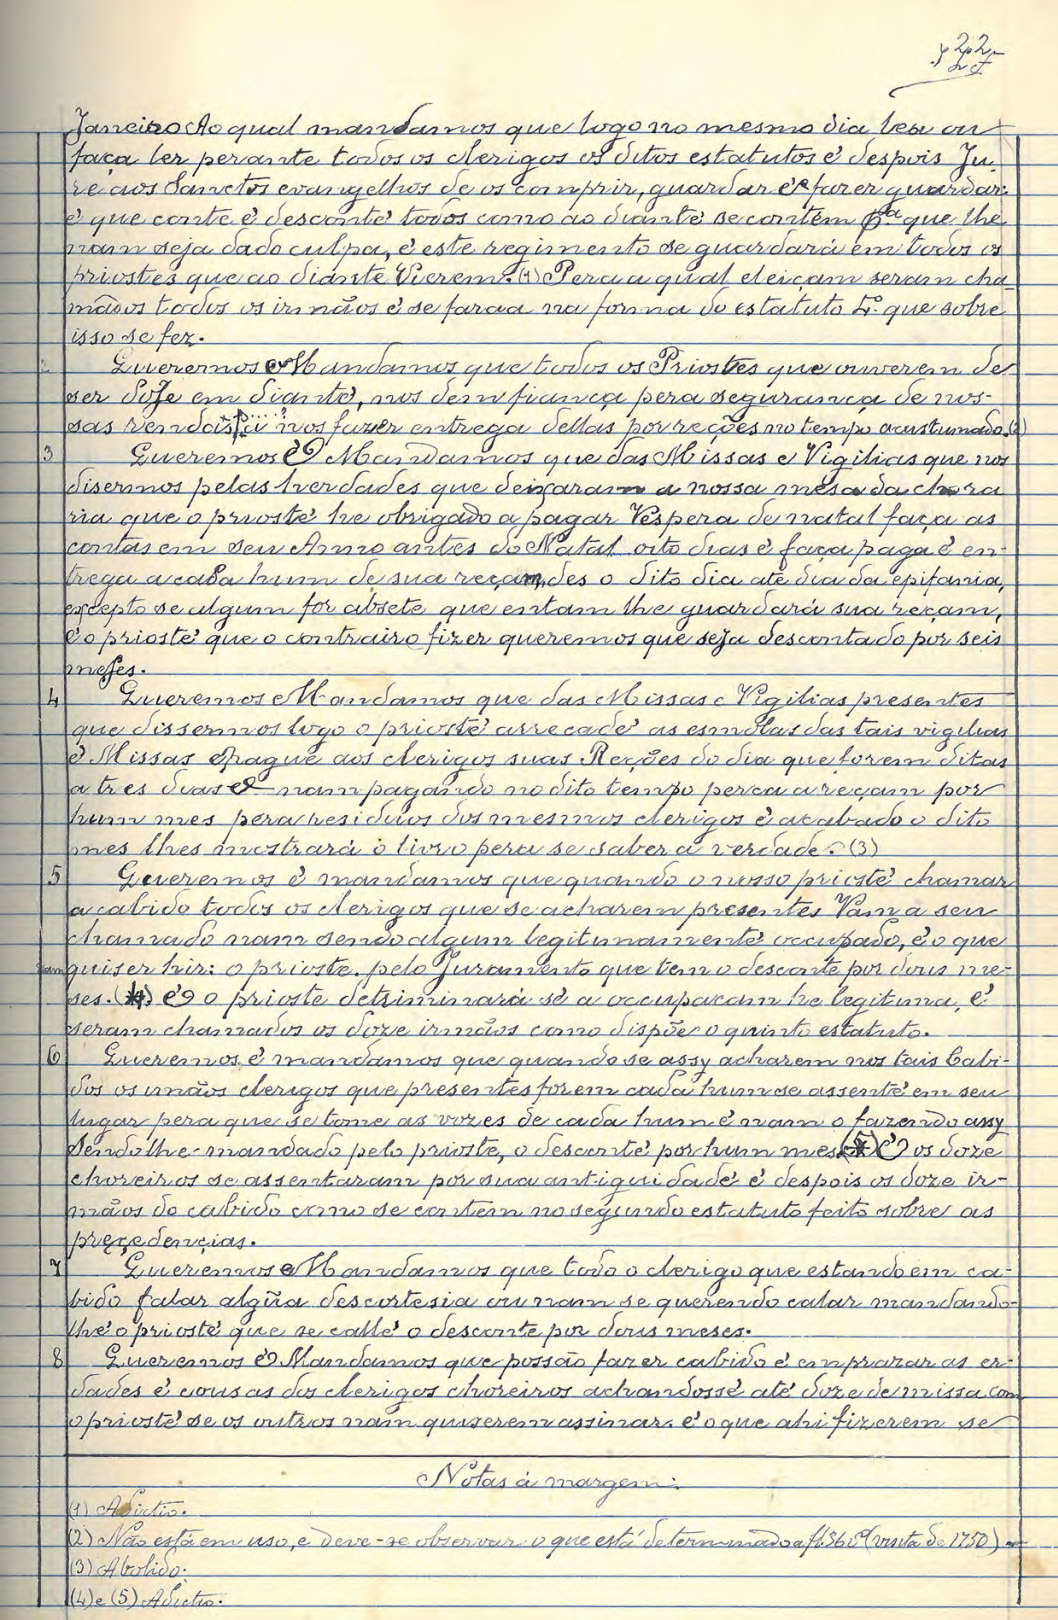 22
Janeiro Ao qual mandamos que logo no mesmo dia leu ou
faça ler perante todos os clerigos os ditos estatutos é despois Ju-
re aos Sanctos evangelhos de os comprir, guardar é fazer guardar:
é que conte é desconte todos como ao diante se contêm p.ª que lhe
nam seja dado culpa, é este regimento se guardará em todos os
priostes que ao diante Vierem. (1) Pera a qual eleiçam seram cha-
mãdos todos os irmãos é se faraa na forma do estatuto 4.º que sobre
isso se fez.
2 Queremos e Mandamos que todos os Priostes que ouverem de
ser doJe em diante, nos dem fiança pera segurança de nos-
sas rendas, nos fazer entrega dellas por reções no tempo acustumado. (2)
3 Queremos E Mandamos que das Missas e Vigilias que nos
disermos pelas herdades que deixaram a nossa mesa da chora
ria que o priosté he obrigado a pagar Vespera de natal faça as
contas em seu Anno antes do Natal oito dias é faça paga é en-
trega a cada hum de sua reçam, des o dito dia até dia da epifania,
excepto se algum for absete que entam lhe guardará sua reçam,
é o priosté que o contrairo fizer queremos que seja descontado por seis
meses.
4 Queremos e Mandamos que das Missas e Vigilias presentes
que dissermos logo o priosté arrecadé as esmolas das tais vigilias
é Missas e pague aos clerigos suas Reções do dia que forem ditas
a tres dias e nam pagando no dito tempo perca a reçam por
hum mes pera residuos dos mesmos clerigos é acabado o dito
mes lhes mostrará o livro pera se saber a verdade. (3)
5 Queremos é mandamos que quando o nosso priosté chamar
a cabido todos os clerigos que se acharem presentes Vam a seu
chamado nam sendo algum legitimamenté occupado, é o que
nam quiser hir: o prioste, pelo Juramento que tem o desconté por dous me-
ses. (4) é o prioste detriminará sé a occupacam he legitima, é
seram chamados os doze irmãos como dispõe o quinto estatuto.
6 Queremos é mandamos que quando se assy acharem nos tais Cabi-
dos os imãos clerigos que presentes forem cada hum se assenté em seu
lugar pera que se tome as vozes de cada hum é nam o fazendo assy
Sendolhe mandado pelo prioste, o desconté por hum mes (5) E os doze
choreiros se assentaram por sua antiguidadé é despois os doze ir-
mãos do cabido como se contem no segundo estatuto feito sobre as
preçedençias.
7 Queremos e Mandamos que todo o clerigo que estando em ca-
bido falar algũa descortesia ou nam se querendo calar mandando-
lhé o priosté que se callé o desconte por dous meses.
8 Queremos E Mandamos que possão fazer cabido é emprazar as er-
dades é cousas dos clerigos choreiros achandossé até doze de missa com
o priosté se os outros nam quiserem assinar. é o que ahi fizerem se
Notas á margem:
(1) Adictio.
(2) Não está em uso, e deve-se observar o que está determinado a fl. 36 (visita de 1750)
(3) Abolido.
(4) e (5) Adictio.